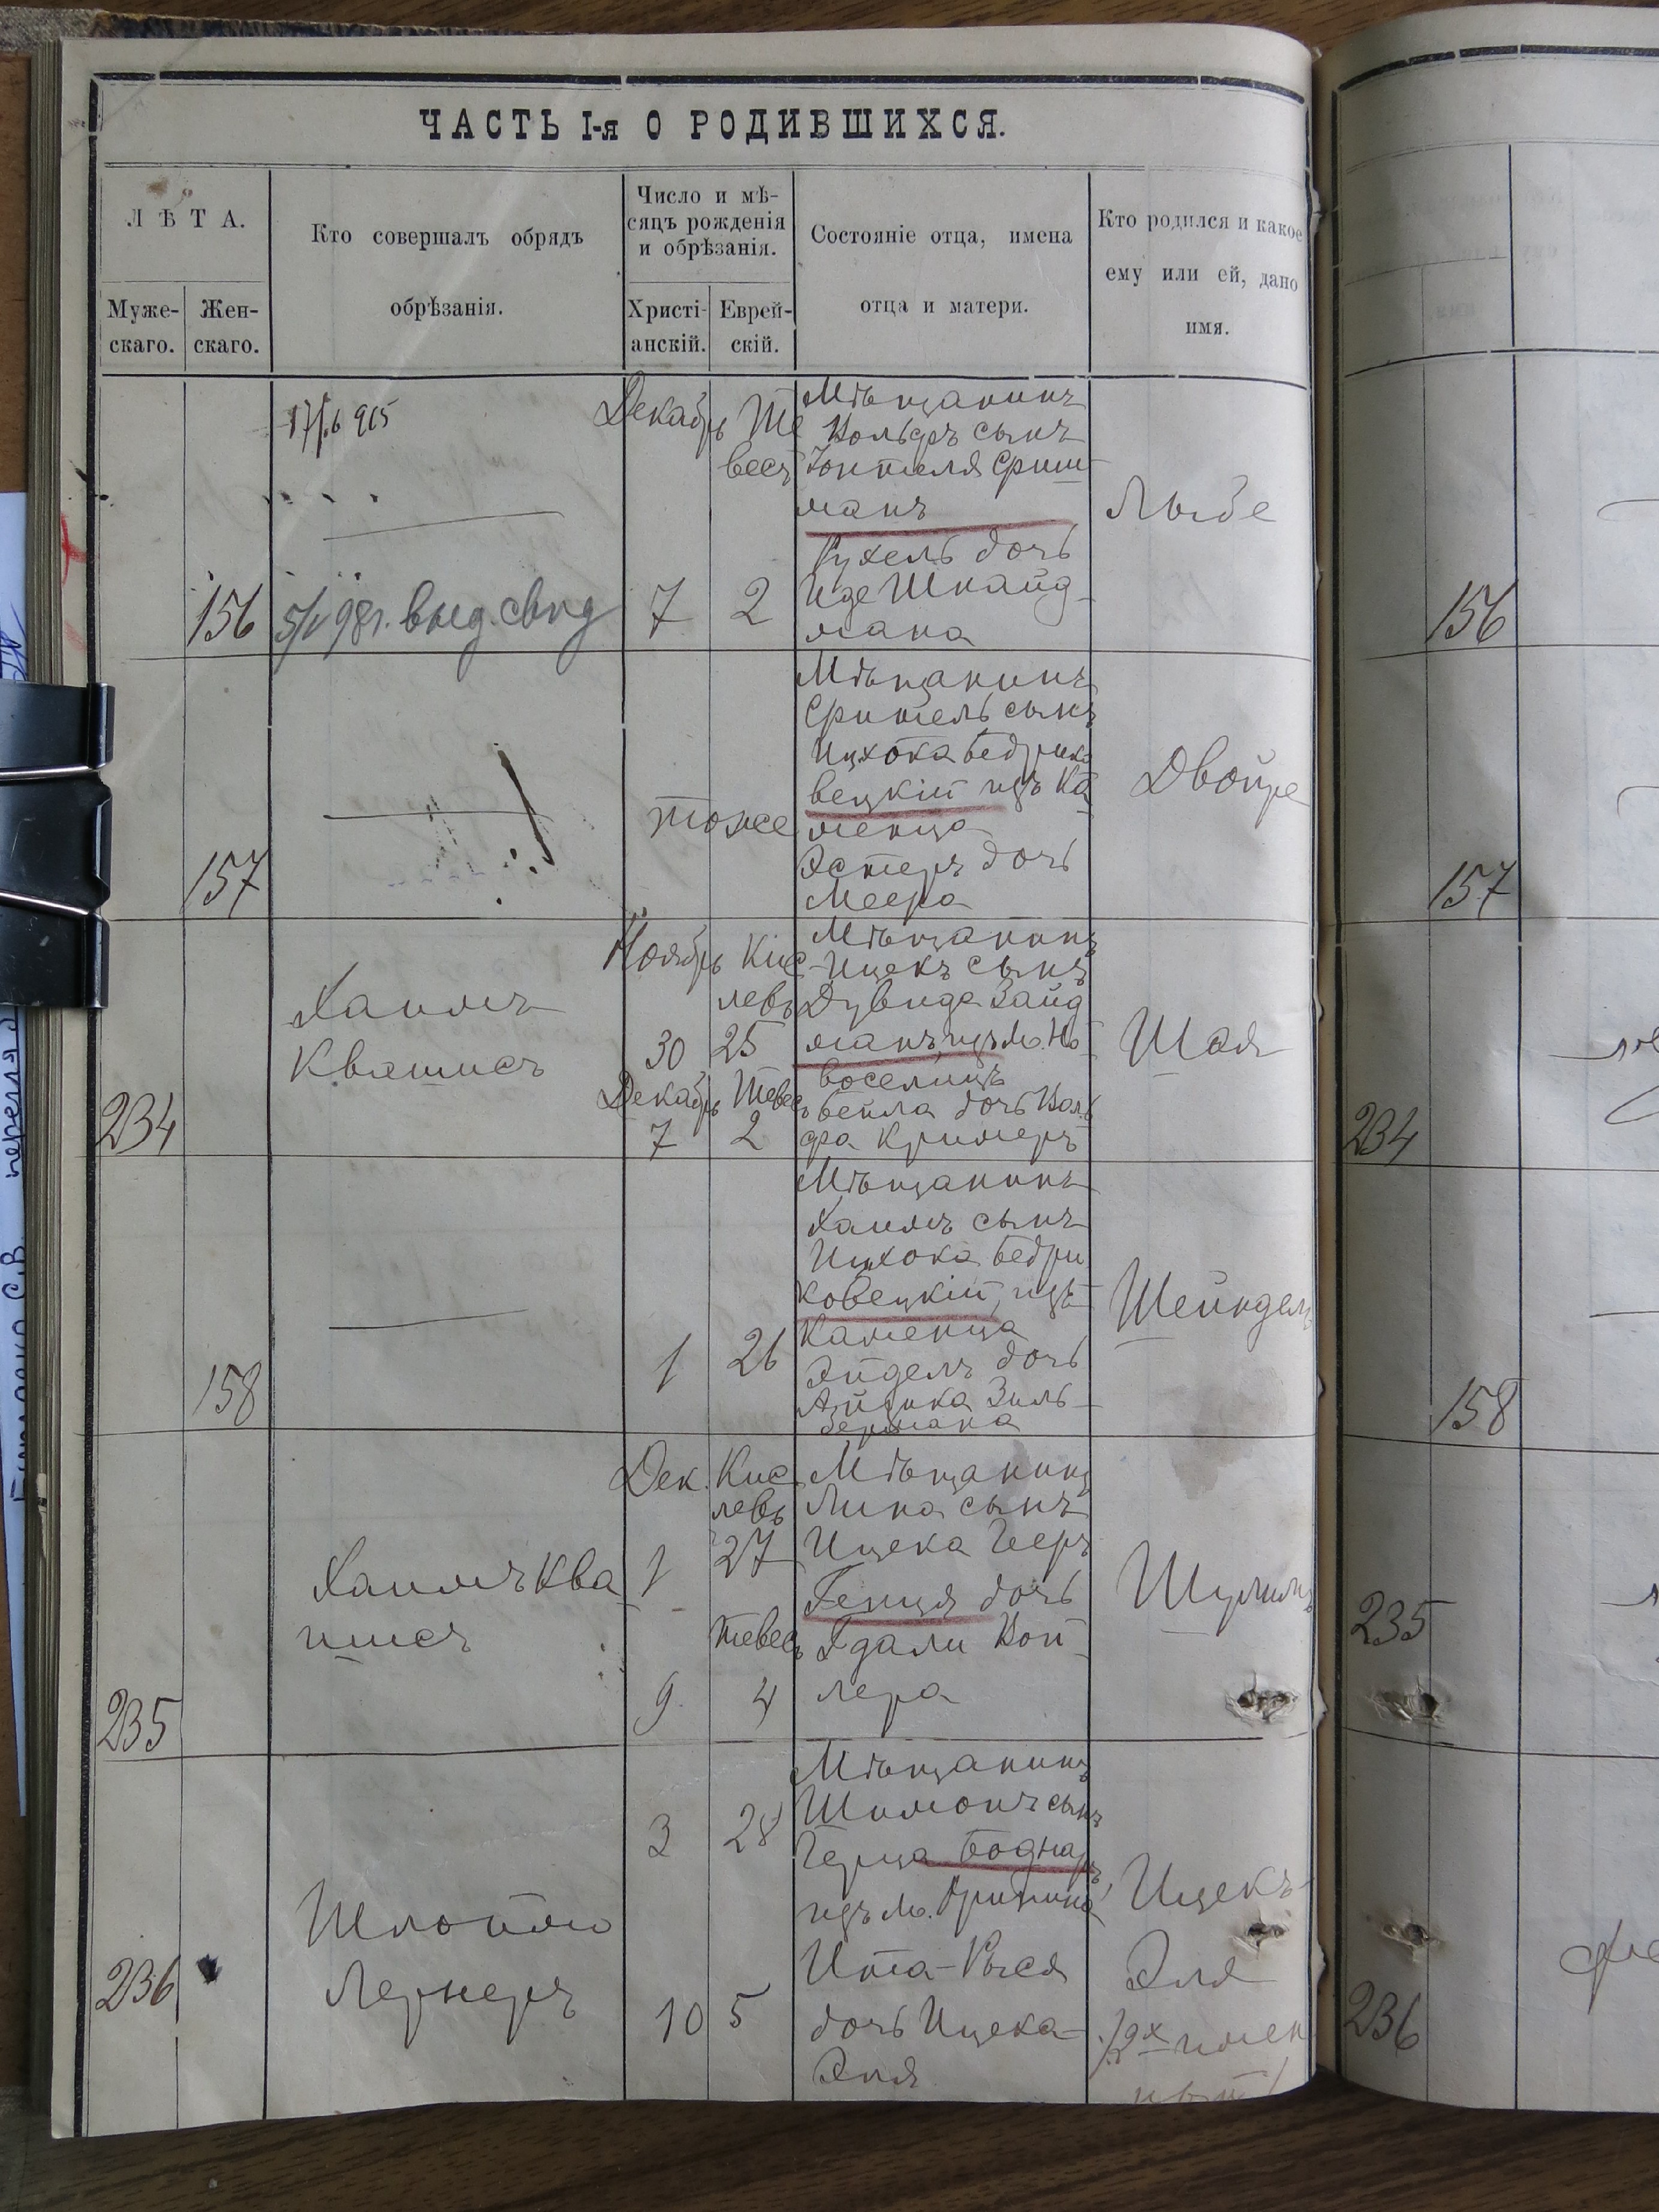 ЧАСТЬ I-я О РОДИВШИХСЯ.
ЛѢТА.
Муже-
скаго.
Жен-
скаго.
Кто совершалъ обрядъ
обрѣзанія.
Число и мѣ-
сяцъ рожденія
и обрѣзанія.
Христі-
анскій.
Еврей-
скій.
Состояніе отца, имена
отца и матери.
Кто родился и какое
ему или ей, дано
имя.
156
98г. выд. свид
Декабрь
7
Те
весъ
2
Мѣщанинъ
Вольфъ сынъ
манъ
Рухель дочь
Шнайд-
мана
156
157
тоже
Мѣщанинъ
сынъ
Ицхока Бедрико
вецкій изъ Ка
менца
Эстеръ дочь
Меера
Двойре
157
234
Хаимъ
Квятисъ
Ноябрь
30
Декабрь
7
Кис
левъ
25
Тевес
2
Мѣщанинъ
Ицекъ сынъ
Дувида Зайд
манъ изъ м. Но
воселицъ
Бейла дочь Воль
фа Кримеръ
Шая
234
158
1
26
Мѣщанинъ
Хаимъ сынъ
Ицхока Бедри
ковецкій, изъ
Каменца
Эйдель дочь
Айзика Зиль-
бермана
Шейндель
158
235
Хаимъ Ква
тисъ
Дек.
1
9
Кис
левъ
27
тевесъ
4
Мѣщанинъ
сынъ
Ицека
Геня дочь
Гдали
лера
Шулимъ
235
236
Лернеръ
3
10
28
5
Мѣщанинъ
Шимонъ сынъ
Герца Боднаръ
изъ м.
Ита-Рыся
дочь Ицека-
Эля
Ицекъ-
Эля
/2х имен
ный/
236